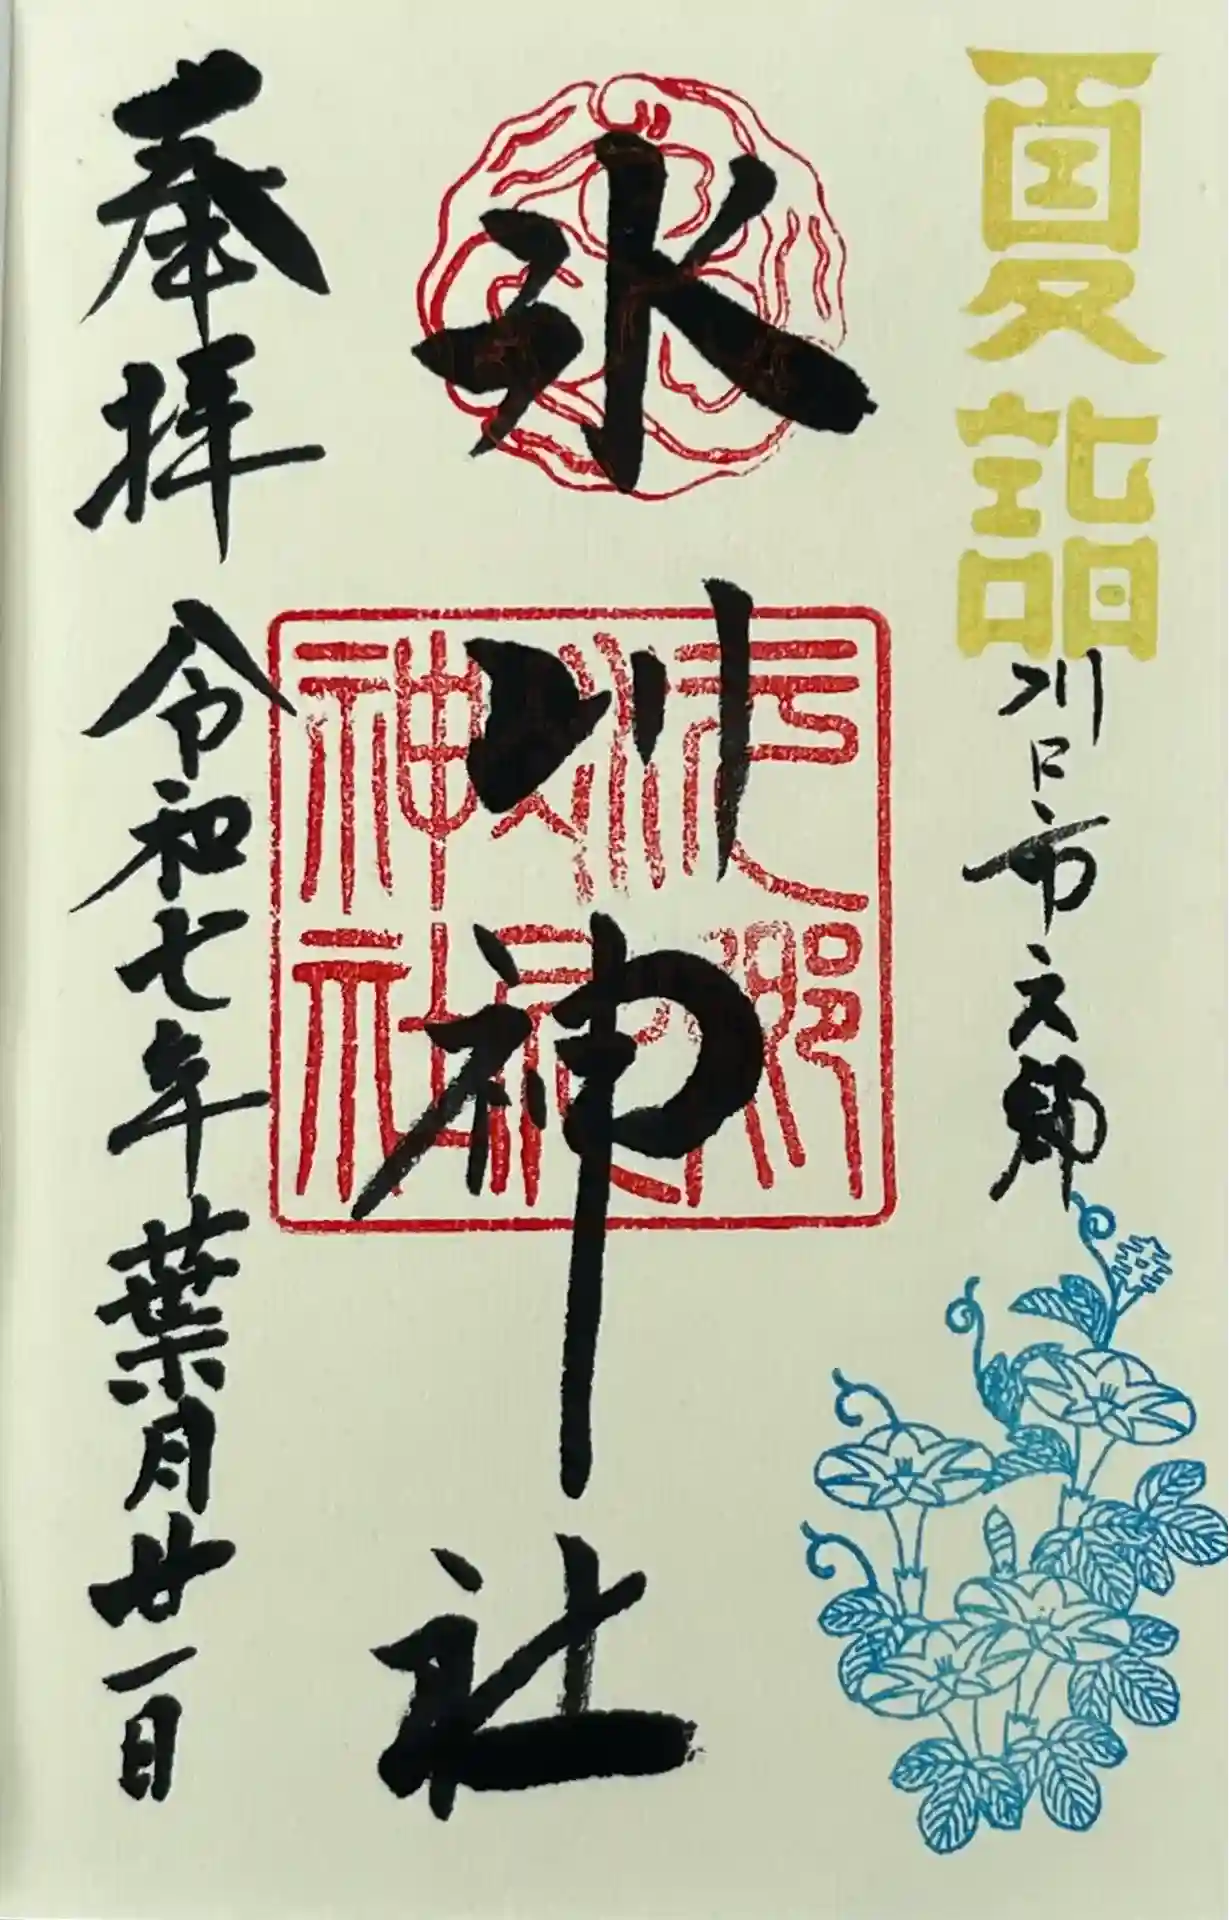 夏詣
川口市元郷
氷川神社
奉拝
令和七年葉月廿一日
神社